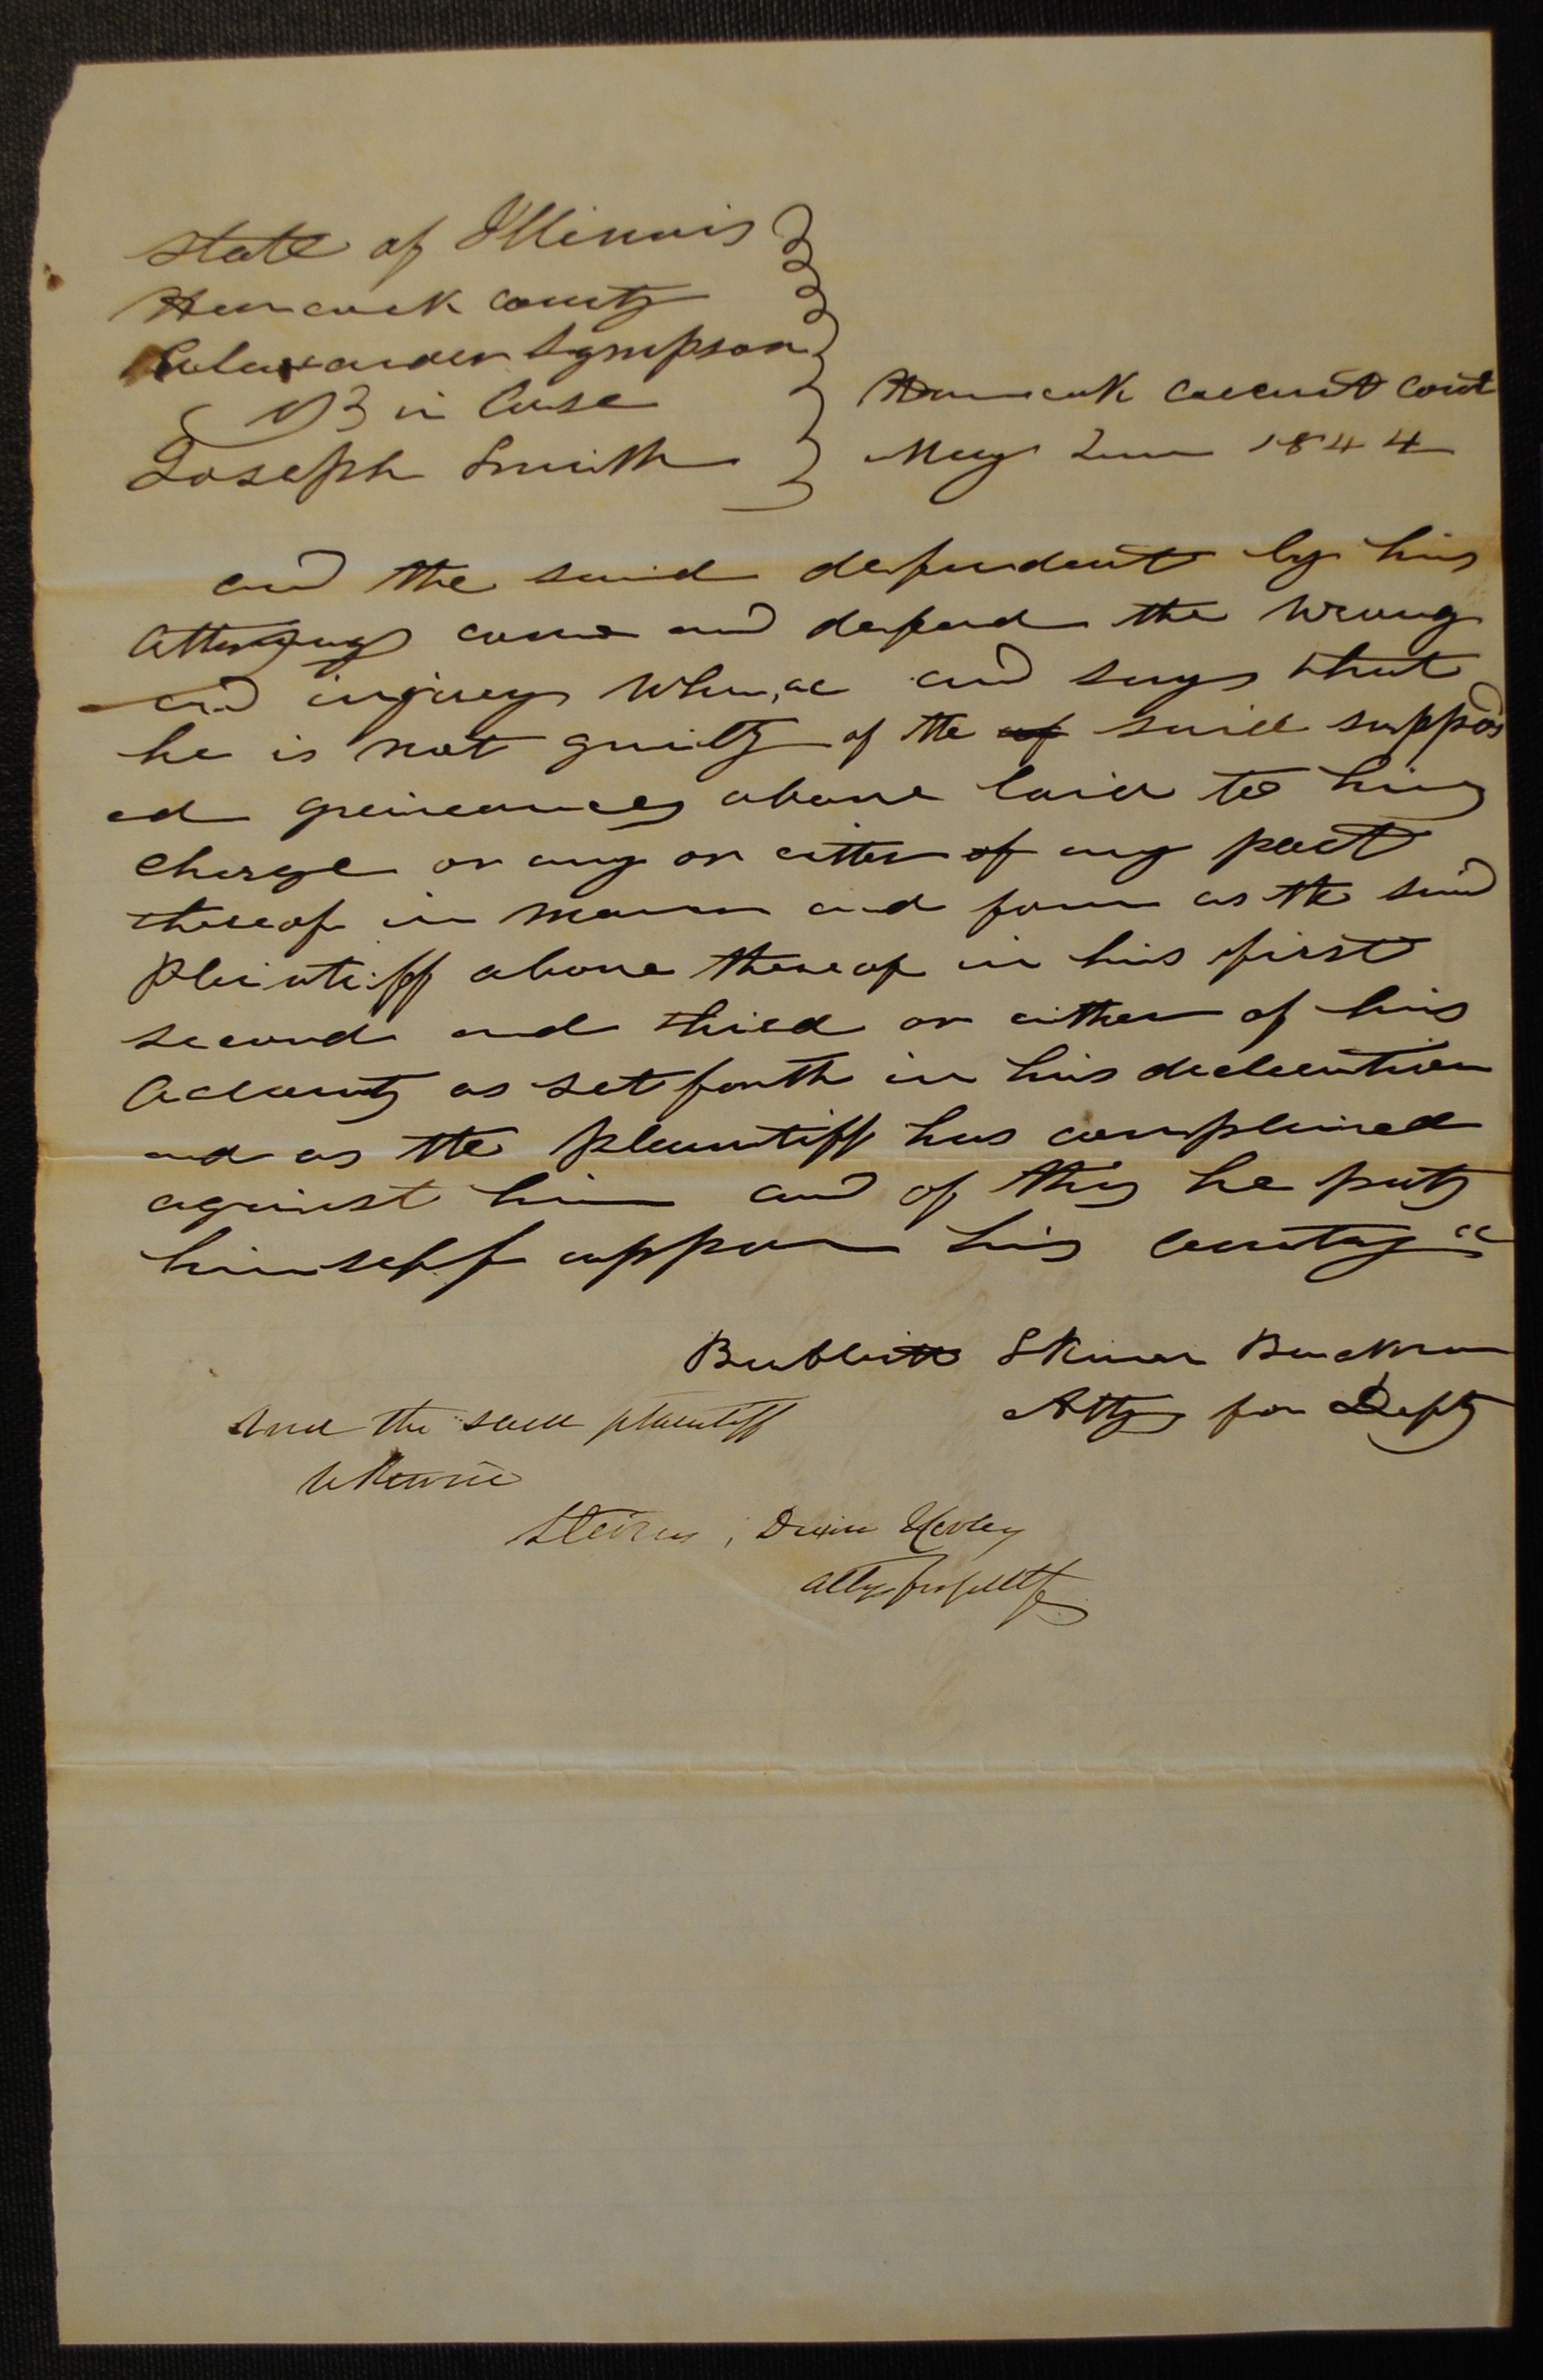 State of Illinois
Hancock County
Alexander Sympson
vs in Case
Joseph Smith
Hancock Circuit Court
May Term 1844
and the said defendent by his
Attorney come and defend the wrong
and injurey when, &c and says that
he is not guilty of the of said suppos
ed greiveances above laid to his
Charge or any or either of any part
thereof in manner and form as the said
Plaintiff above thereof in his first
second and third or either of his
Accounts as set forth in his decleration
and as the plaintiff has complained
against him and of this he puts
himself uppon his County &c
Babbitt Skinner Backman
Attys for Deft
And the said plaintiff
likewise
Stevens, Dixon Kerley
Attys for pltff